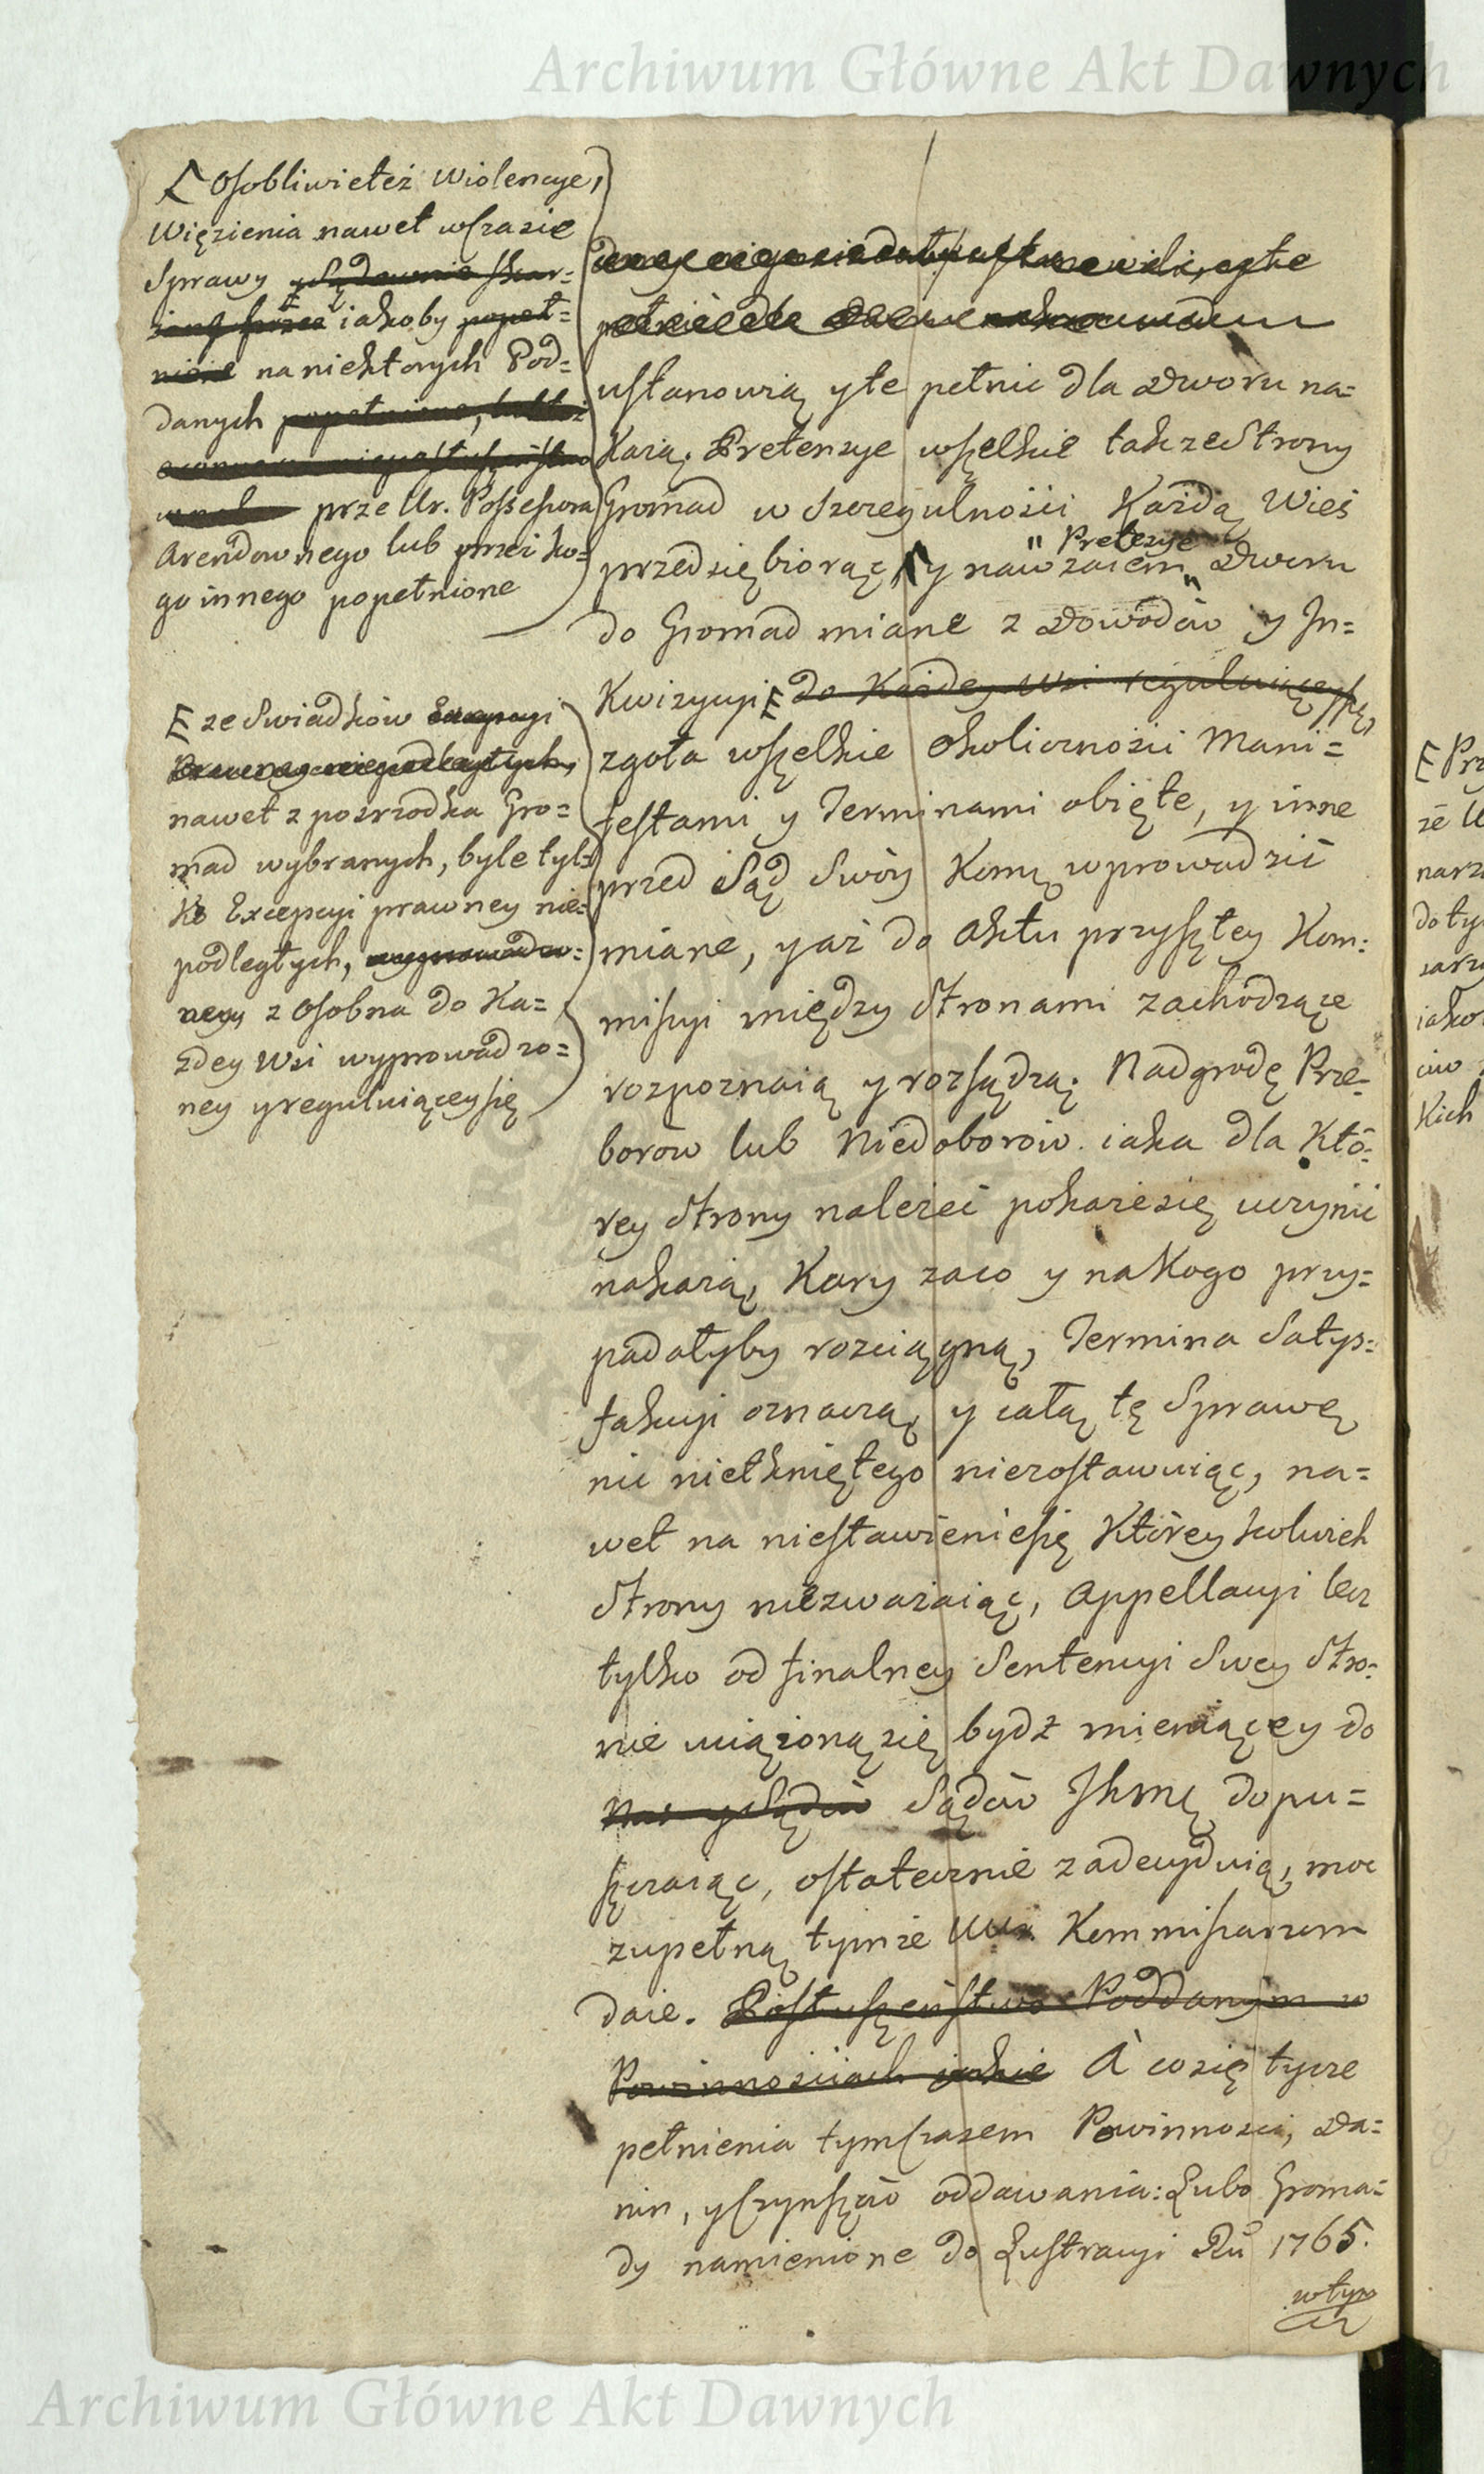 Archiwum Główne Akt Dawnych
Osobliwie też Wiolencye,
Więzienia nawet wczasie
Sprawy y Sądownie skar=
iakoby popeł=
nione na niektorych Pod=
danych popełnione,
prze Ur. Possessora
Arendownego lub przez ko=
go innego popełnione
E ze Swiadków Excepcyi
Prawney niepodległych,
nawet z poszrzodka Gro=
mad wybranych, byle tyl=
ko Excepcyi prawney nie=
podległych, wyprowadzo=
ney z osobna do Ka=
zdey Wsi wyprowadzo=
ney y reguluiącey się
ustanowią, y te pełnic dla Dworu na=
każą. Pretensye wszelkie tak ze Strony
Gromad w szczegulności Każdą Wieś
przedsiębiorąc, y nawzaiem " Pretensye " Dworu
do Gromad miane z Dowodów y In=
kwizycyi E do Każdey Wsi reguluiącey się,
zgoła wszelkie okoliczności Mani=
festami y Terminami obięte, y inne
przed Sąd Swóy Komę wprowadzić
miane, y aż do Aktu przyszłey Kom=
missyi między Stronami zachodzące
rozpoznaią y rozsądzą. Nadgrodę Prze=
borow lub Niedoborow iaka dla Któ=
rey Strony należeć pokaże się uczynić
nakażą, Kary za co y na Kogo przy=
padałyby rozciągną, Termina Satys=
fakcyi oznaczą, y całą tę Sprawę
nic nietkniętego niezostawuiąc, na=
wet na niestawienie się Którey kolwiek
Strony niezważaiąc, Appellacyi lecz
tylko od finalney Sentencyi Swey Stro=
nie uciążoną się bydź mieniącey do
Nas y Sądów Sądów JKMę dopu=
szczaiąc, ostatecznie zadecyduią, moc
zupełną tymże UUr. Kommissarzom
daie. Posłuszeństwo Poddanym w
Powinnościach jakie A co się tycze
pełnienia tymczasem Powinności, Da=
nin, y Czynszów oddawania: Lubo Groma=
dy namienione do Lustracyi Ru 1765.
w tym
E Prz
że U
narz
do ty
sarz
iako
ciw
kich
Archiwum Główne Akt Dawnych